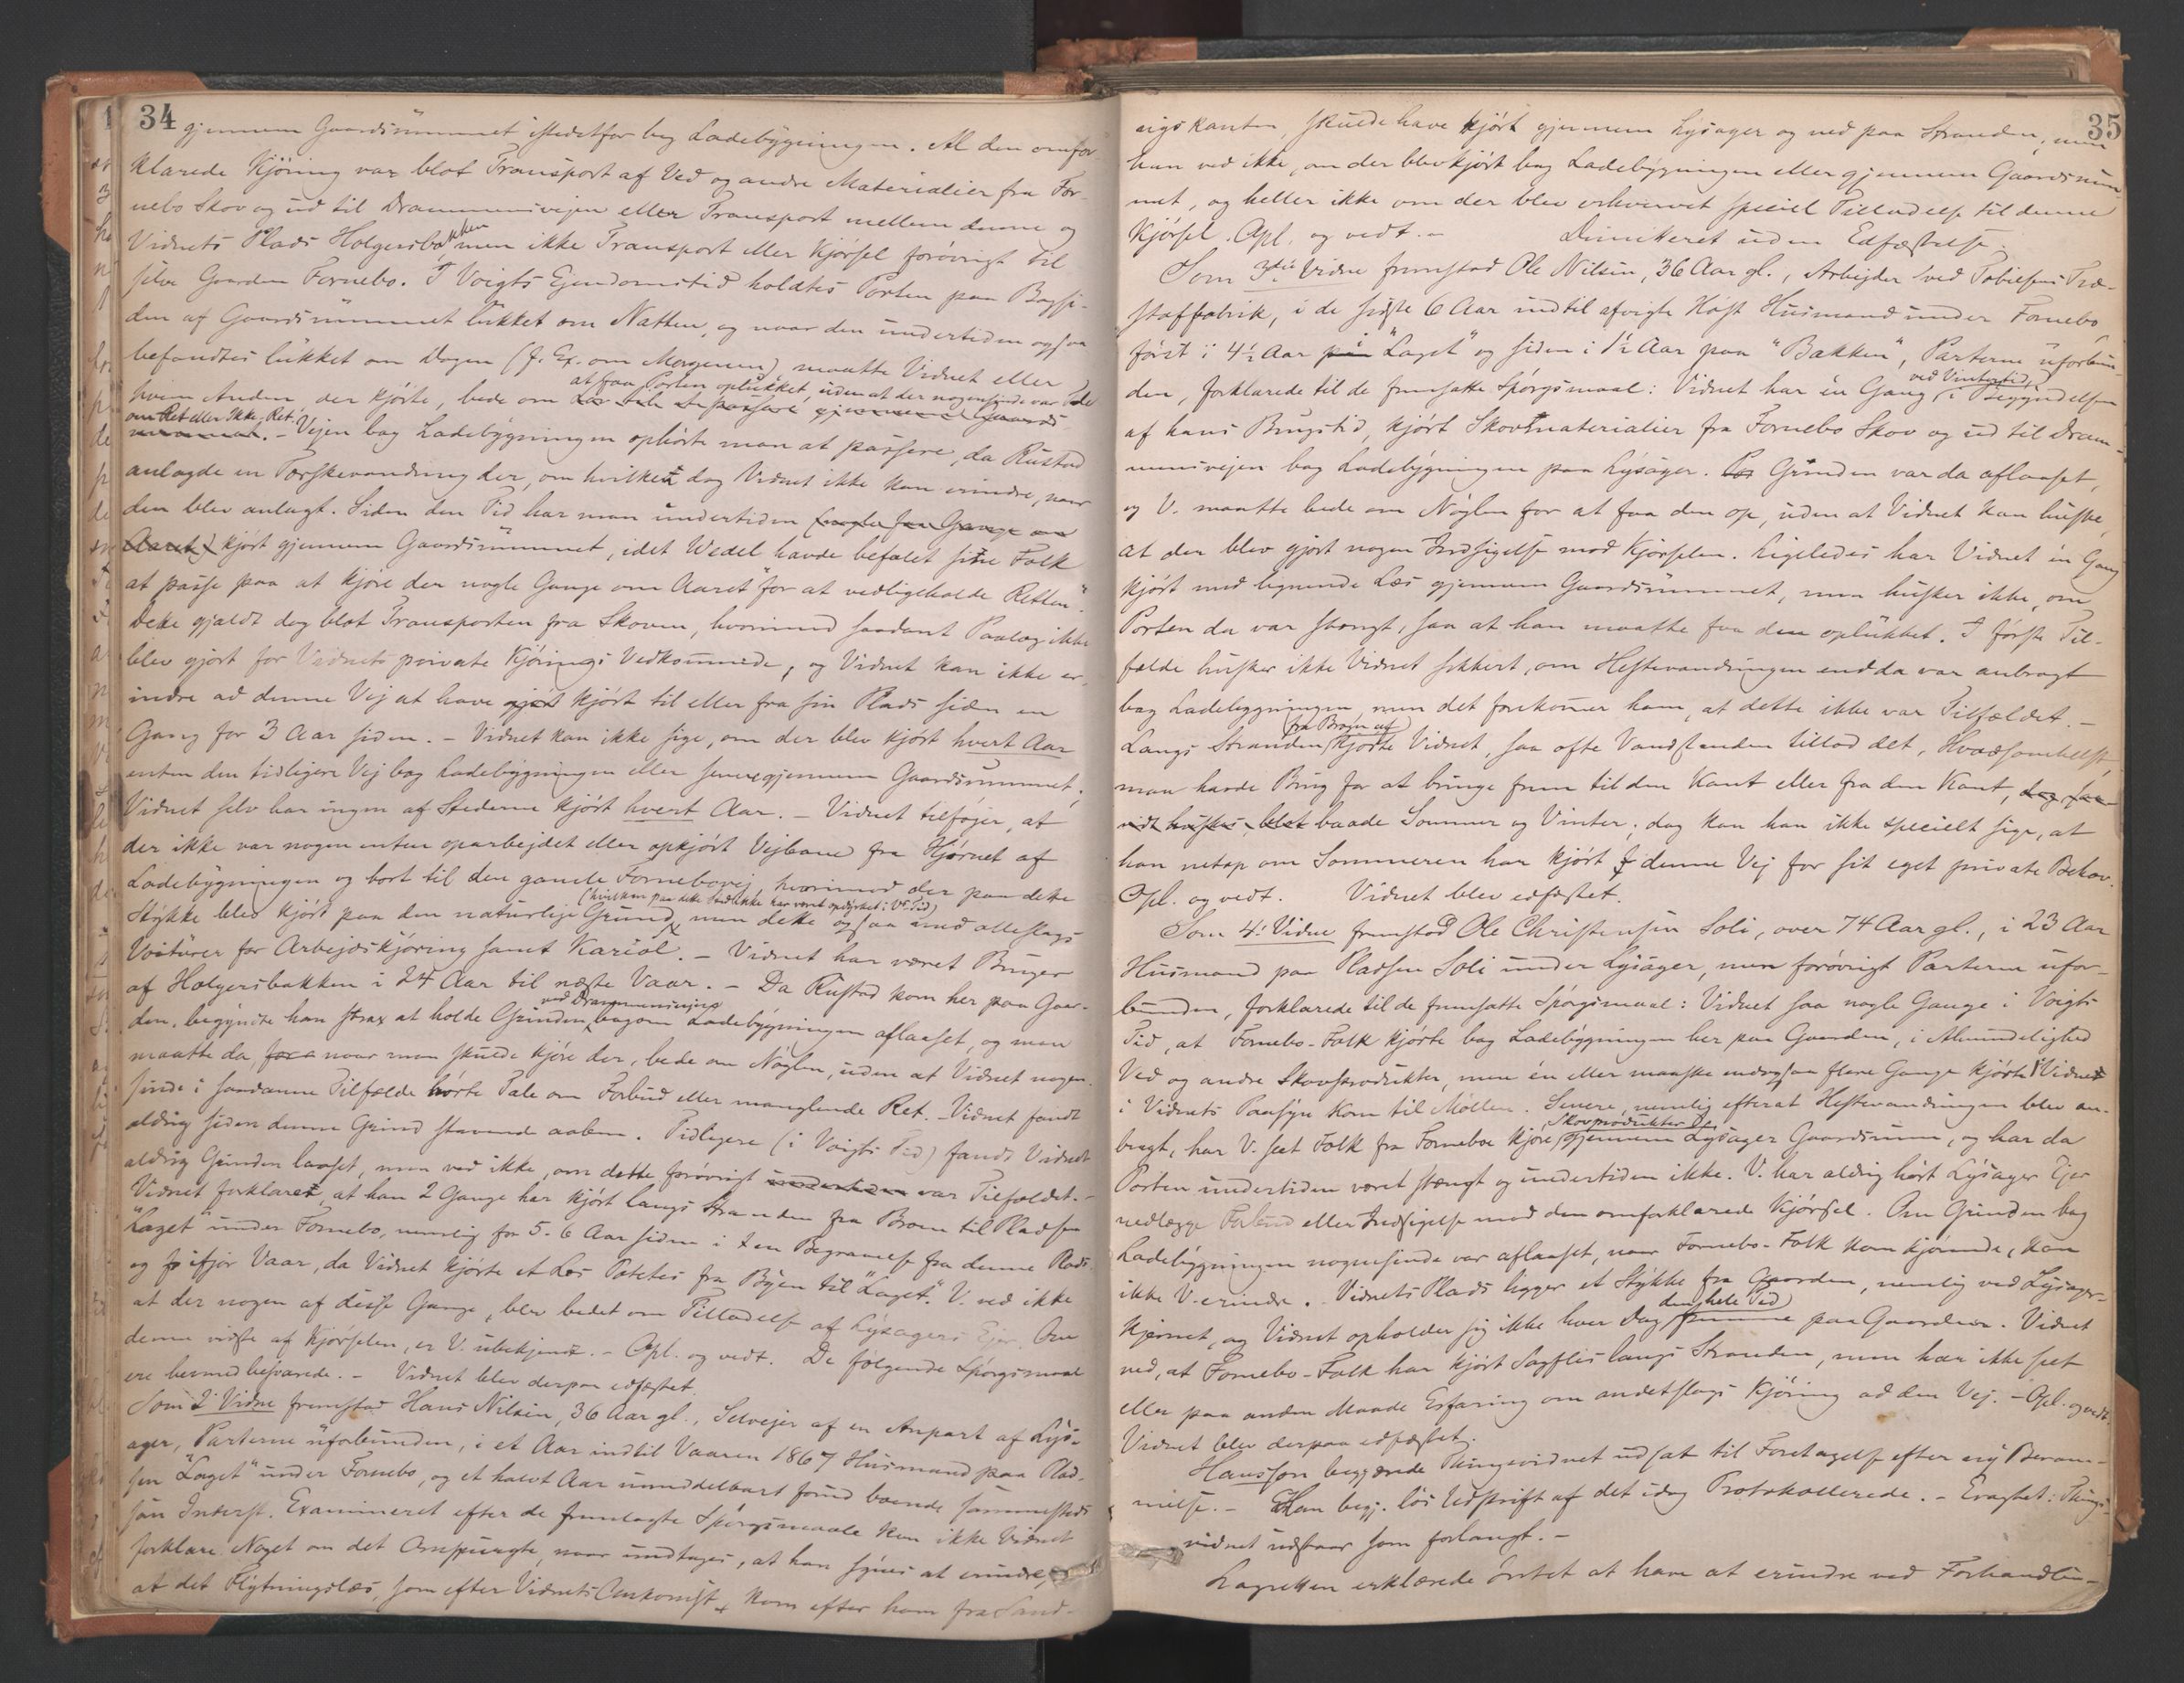 34
gjennem Gaardsrummet istedetfor bag Ladebygningen. Al den omfor-
klarede Kjöring var blot Transport af Ved og andre Materialier fra For-
nebo Skov og ud til Drammensvejen eller Transport mellem denne og
Vidnets Plads Holgersbakken men ikke Transport eller Kjörsel forövrigt til
selve Gaarden Fornebo. I Voigts Ejendomstid holdtes Porten paa Bagsi-
den af Gaardsrummet lukket om Natten, og naar den undertiden ogsaa
befandtes lukket om Dagen (f. Ex. om Morgenen) maatte Vidnet eller
hvem Anden, der kjörte, bede om at faa Porten oplukket, uden at der nogensinde var Tale
om Ret eller Ikke-Ret. - Vejen bag Ladebygningen ophörte man at passere, da Rustad
anlagde en Tærskevandring der, om hvilken dog Vidnet ikke kan erindre, naar
den blev anlagt. Siden den Tid har man undertiden (nogle faa Gange om
Aaret) kjört gjennem Gaardsrummet, idet Wedel havde befalet sine Folk
at passe paa at kjöre der nogle Gange om Aaret "for at vedligeholde Retten".
Dette gjaldt dog blot Transporten fra Skoven, hvorimod saadant Paalæg ikke
blev gjort for Vidnets private Kjörings Vedkommende, og Vidnet kan ikke er-
indre ad denne Vej at have kjört til eller fra sin Plads siden en
Gang for 3 Aar siden. - Vidnet kan ikke sige, om der blev kjört hvert Aar
enten den tidligere Vej bag Ladebygningen eller senere gjennem Gaardsrummet;
Vidnet selv har ingen af Stederne kjört hvert Aar. - Vidnet tilföjer, at
der ikke var nogen enten oparbejdet eller opkjört Vejbane fra Hjörnet af
Ladebygningen og bort til den gamle Fornebovej, hvorimod der paa dette
Stykke blev kjört paa den naturlige Grund (hvilken paa dette Sted ikke har været opdyrket i V's Tid) men dette ogsaa med alleslags
Voitürer for Arbejdskjöring samt Kariol. - Vidnet har været Bruger
af Holgersbakken i 24 Aar til næste Vaar. - Da Rustad kom her paa Gaar-
den, begyndte han strax at holde Grinden ved Drammensvejen bagom Ladebygningen aflaaset, og man
maatte da, naar man skulde kjöre der, bede om Nöglen, uden at Vidnet nogen-
sinde i saadanne Tilfælde hörte Tale om Forbud eller manglende Ret. Vidnet fandt
aldrig siden denne Grind staaende aaben. Tidligere (i Voigts Tid) fandt Vidnet
aldrig Grinden laaset, men ved ikke, om dette forövrigt undertiden var Tilfældet. -
Vidnet forklaret, at han 2 Gange har kjört langs Stranden fra Broen til Pladsen
"Laget" under Fornebo, nemlig for 5-6 Aar siden i en Begravelse fra denne Plads
og ifjor Vaar, da Vidnet kjörte et Læs Potetes fra Byen til "Laget". V. ved ikke
at der nogen af disse Gange, blev bedet om Tilladelse af Lysagers Ejer. Om
denne vidste af Kjörselen, er V. ubekjendt. - Opl. og vedt. De fölgende Spörgsmaal
ere hermed besvarede. - Vidnet blev derpaa edfæstet.
Som 2' Vidne fremstod Hans Nilsen, 36 Aar gl., Selvejer af en Anpart af Lys-
ager, Parterne uforbunden, i et Aar indtil Vaaren 1867 Husmand paa Plad-
sen "Laget" under Fornebo, og et halvt Aar umiddelbart forud boende sammesteds
som Inderst. Examineret efter de fremlagte Spörgsmaale kan ikke Vidnet
forklare Noget om det Omspurgte, naar undtages, at han synes at erindre,
at det Flytningslæs, som efter Vidnets Ankomst kom efter ham fra Sand-
35
vigskanten, skulde have kjört gjennem Lysager og ned paa Stranden; men
han ved ikke, om der blev kjört bag Ladebygningen eller gjennem Gaardsrum-
met, og heller ikke om der blev erhvervet speciel Tilladelse til denne
Kjörsel. Opl. og vedt. - Dimitteret uden Edfæstelse.
Som 3die Vidne fremstod Ole Nilsen, 36 Aar gl., Arbejder ved Tobiesens Træ-
stoffabrik, i de sidste 6 Aar indtil afvigte Höst Husmand under Fornebo,
först i 4½ Aar i "Laget" og siden i 1½ Aar paa "Bakken", Parterne uforbun-
den, forklarede til de fremsatte Spörgsmaal: Vidnet har én Gang, ved Vintertid, i Begyndelsen
af hans Brugstid, kjört Skovmaterialier fra Fornebo Skov og ud til Dram-
mensvejen bag Ladebygningen paa Lysager. Grinden var da aflaaset,
og V. maatte bede om Nöglen for at faa den op, uden at Vidnet kan huske,
at der blev gjort nogen Indsigelse mod Kjörselen. Ligeledes har Vidnet én Gang
kjört med lignende Læs gjennem Gaardsrummet, men husker ikke, om
Porten da var stengt, saa at han maatte faa den oplukket. I förste Til-
fælde husker ikke Vidnet sikkert, om Hestevandringen endda var anbragt
bag Ladebygningen, men det forekommer ham, at dette ikke var Tilfældet. -
Langs Stranden fra Broen af kjörte Vidnet, saa ofte Vandstanden tillod det, Hvadsomhelst,
man havde Brug for at bringe frem til den Kant eller fra den Kant, dog saa-
vidt huskes, blot baade Sommer og Vinter; dog kan han ikke specielt sige, at
han netop om Sommeren har kjört denne Vej for sit eget private Behov.
Opl. og vedt. Vidnet blev edfæstet.
Som 4' Vidne fremstod Ole Christensen Soli, over 74 Aar gl., i 23 Aar
Husmand paa Pladsen Soli under Lysager, men forövrigt Parterne ufor-
bunden, forklarede til de fremsatte Spörgsmaal: Vidnet saa nogle Gange i Voigts
Tid, at Fornebo-Folk kjörte bag Ladebygningen her paa Gaarden, i Almindelighed
Ved og andre Skovprodukter, men én eller maaske endogsaa flere Gange kjörte
i Vidnets Paasyn Korn til Möllen. Senere, nemlig efterat Hestevandringen blev an-
bragt, har V. seet Folk fra Fornebo kjöre Skovprodukter gjennem Lysager Gaardsrum, og har da
Porten undertiden været stængt og undertiden ikke. V. har aldrig hört Lysager Ejer
nedlægge Forbud eller Indsigelse mod den omforklarede Kjörsel. Om Grinden bag
Ladebygningen nogensinde var aflaaset, naar Fornebo-Folk kom kjörende, kan
ikke V. erindre. Vidnets Plads ligger et Stykke fra Gaarden, nemlig ved Lysager-
kjernet, og Vidnet opholder sig ikke hver Dag den hele Tid paa Gaarden. Vidnet
ved, at Fornebo-Folk har kjört Sagflis langs Stranden, men har ikke seet
eller paa anden Maade Erfaring om andetslags Kjöring ad den Vej. - Opl. og vedt.
Vidnet blev derpaa edfæstet.
Hansson begjærede Thingsvidnet udsat til Foretagelse efter ny Beram-
melse. - Han begj. lös Udskrift af det idag Protokollerede. - Eragtet: Things-
vidnet udstaar som forlangt. -
Lagretten erklærede Intet at have at erindre ved Forhandlin-